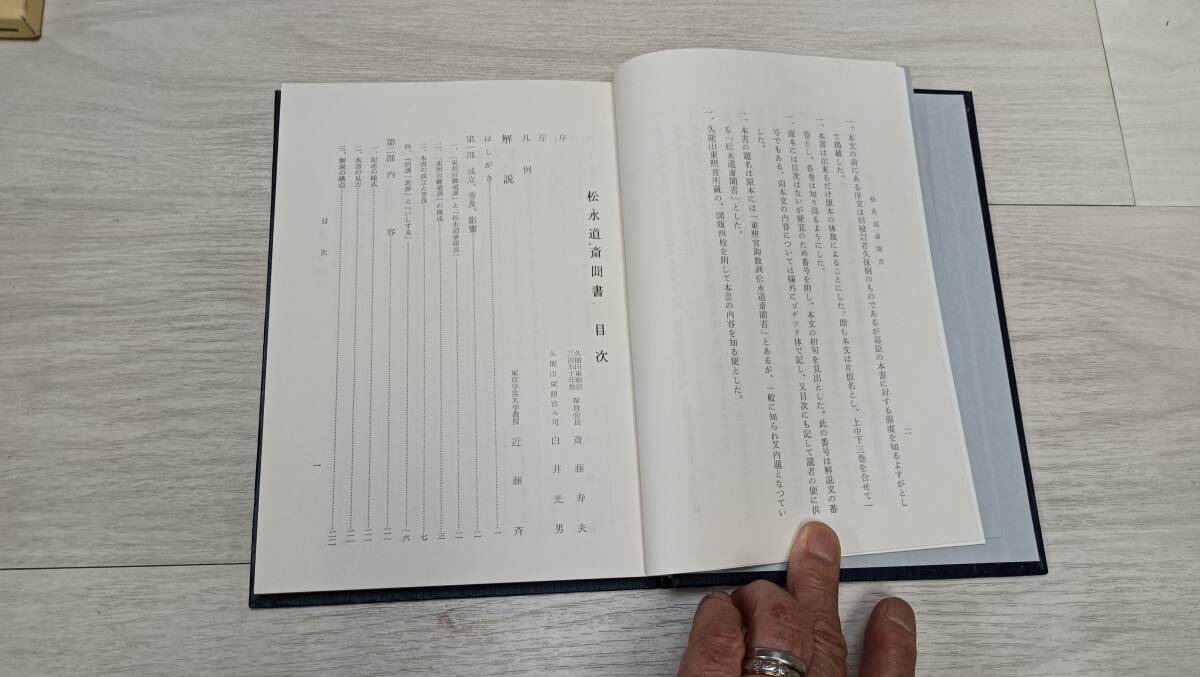 松永道斎聞書
二
一、本文の前にある序文は旧校訂者久保侗のものであるが幕臣の本書に対する態度を知るよすがとし
て掲載した。
一、本書は出来るだけ原本の体裁によることにした。即ち本文は片仮名とし、上中下三巻を合せて一
巻とし、各巻は知り得るようにした。
一、原本には目次はないが便宜のため番号を附し、本文の初句を見出とした。此の番号は解説文の番
号でもある。尚本文の内容については欄外にゴチック体で記し、又目次にも記して読者の便に供
した。
一、本書の題名は原本には「東照宮御教訓松永道斎聞書」とあるが、一般に知られ又内題となつてい
る「松永道斎聞書」とした。
一、久能山東照宮所蔵の、図版四枚を附して本書の内容を知る便とした。
松永道斎聞書 目次
序 久能山東照宮三百五十年祭 奉賛会長 斎藤寿夫
序 久能山東照宮宮司 白井光男
凡例
解説 東京学芸大学教授 近藤斉
はしがき 一
第一部 成立、普及、影響 二
一、「東照宮御遺訓」と「松永道斎聞書」 二
二、「東照宮御遺訓」の構成 三
三、本書の成立と普及 七
四、「明訓一斑抄」と「いしずゑ」 一六
第二部 内容 二一
一、叙述の様式 二一
二、本書の見方 二一
三、解説の構造 二二
目次
一